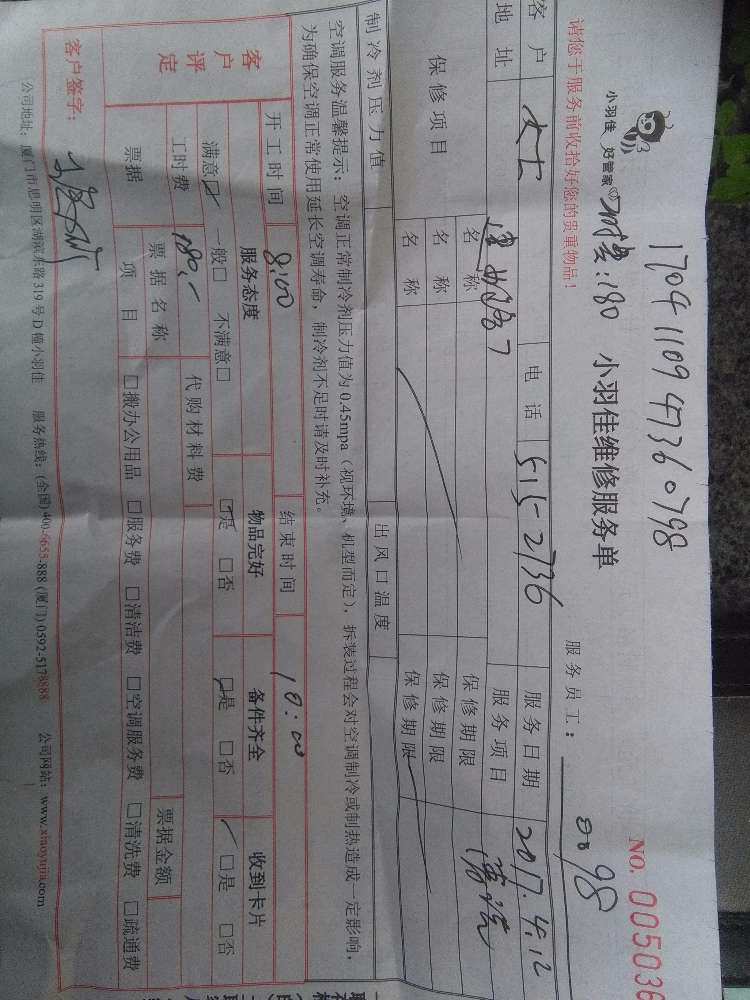 17041109 47360798
小羽佳 好管家
180 小羽佳维修服务单
NO. 005036
请您于服务前收拾好您的贵重物品！
服务员工： 0098
客户 女士 电话 515-2736 服务日期 2017.4.12
地址 服务项目
保修项目 名称 保修期限
名称 保修期限
名称 保修期限
制冷剂压力值 出风口温度
空调服务温馨提示：空调正常制冷剂压力值为0.45mpa（视环境、机型而定），拆装过程会对空调制冷或制热造成一定影响，
为确保空调正常使用延长空调寿命，制冷剂不足时请及时补充。
开工时间 8:00 结束时间 10:00
客户评定 服务态度 物品完好 备件齐全 收到卡片
满意☑ 一般□ 不满意□ ☑是 □否 ☑是 □否 ☑是 □否
工时费 180.- 代购材料费
票据 票据名称 票据金额
项目 □搬办公用品 □服务费 □清洁费 □空调服务费 □清洗费 □疏通费
客户签字：
公司地址：厦门市思明区湖滨东路319号D幢小羽佳 服务热线：(全国)400-6655-888 (厦门) 0592-5178888 公司网站：www.xiaoyujia.com